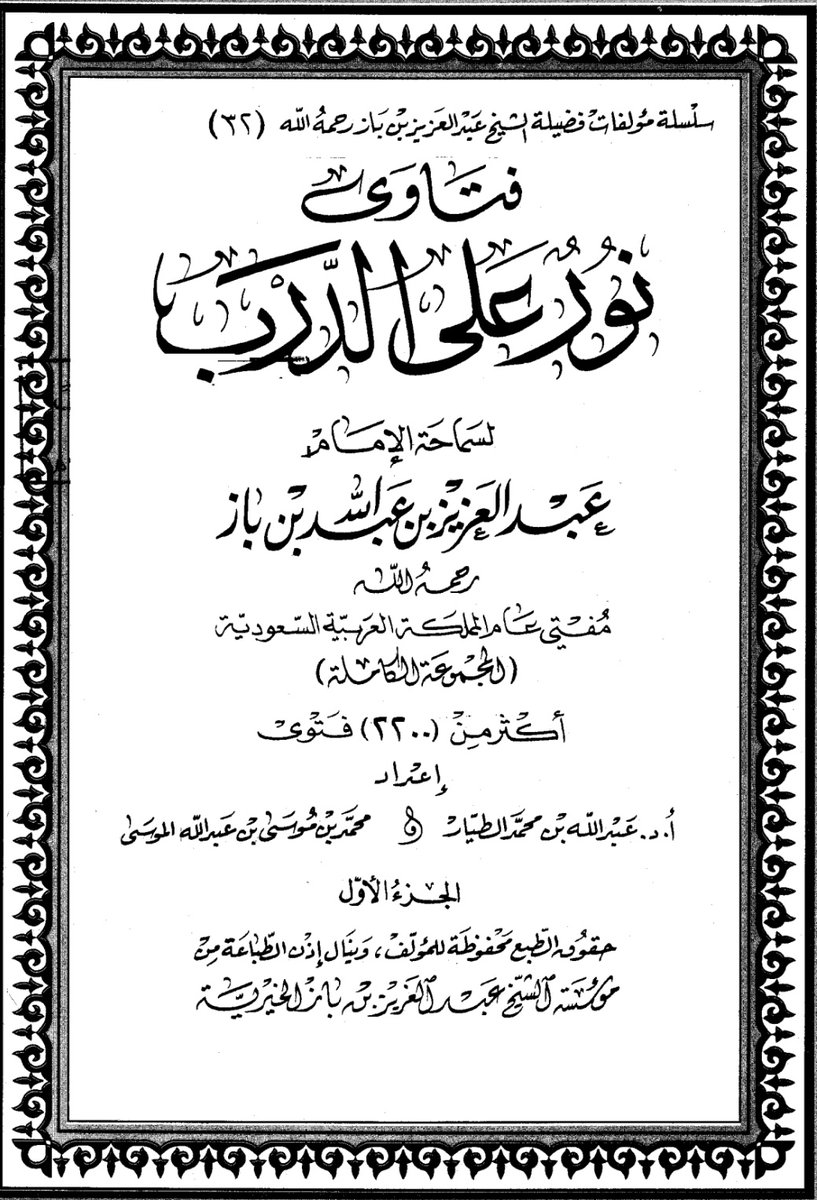 سلسلة مؤلفات فضيلة الشيخ عبد العزيز بن باز رحمه الله (٣٢)
فتاوى
نُورٌ عَلى الدَّرْبِ
لسماحة الإمام
عَبْد العَزيْز بن عَبد الله بن باز
رحمه الله
مُفتي عام المملكة العربيّة السّعوديّة
(المجموعة الكاملة)
أكثر مِنْ (٢٢٠٠) فتوى
إعداد
أ.د. عبد الله بن محمّد الطيّار و محمّد بن مُوسى بن عبد الله الموسى
الجزء الأوّل
حقوق الطّبع محفوظة للمؤلّف، وينال إذن الطّباعة من
مؤسّسة الشّيخ عبد العزيز بن باز الخيريّة